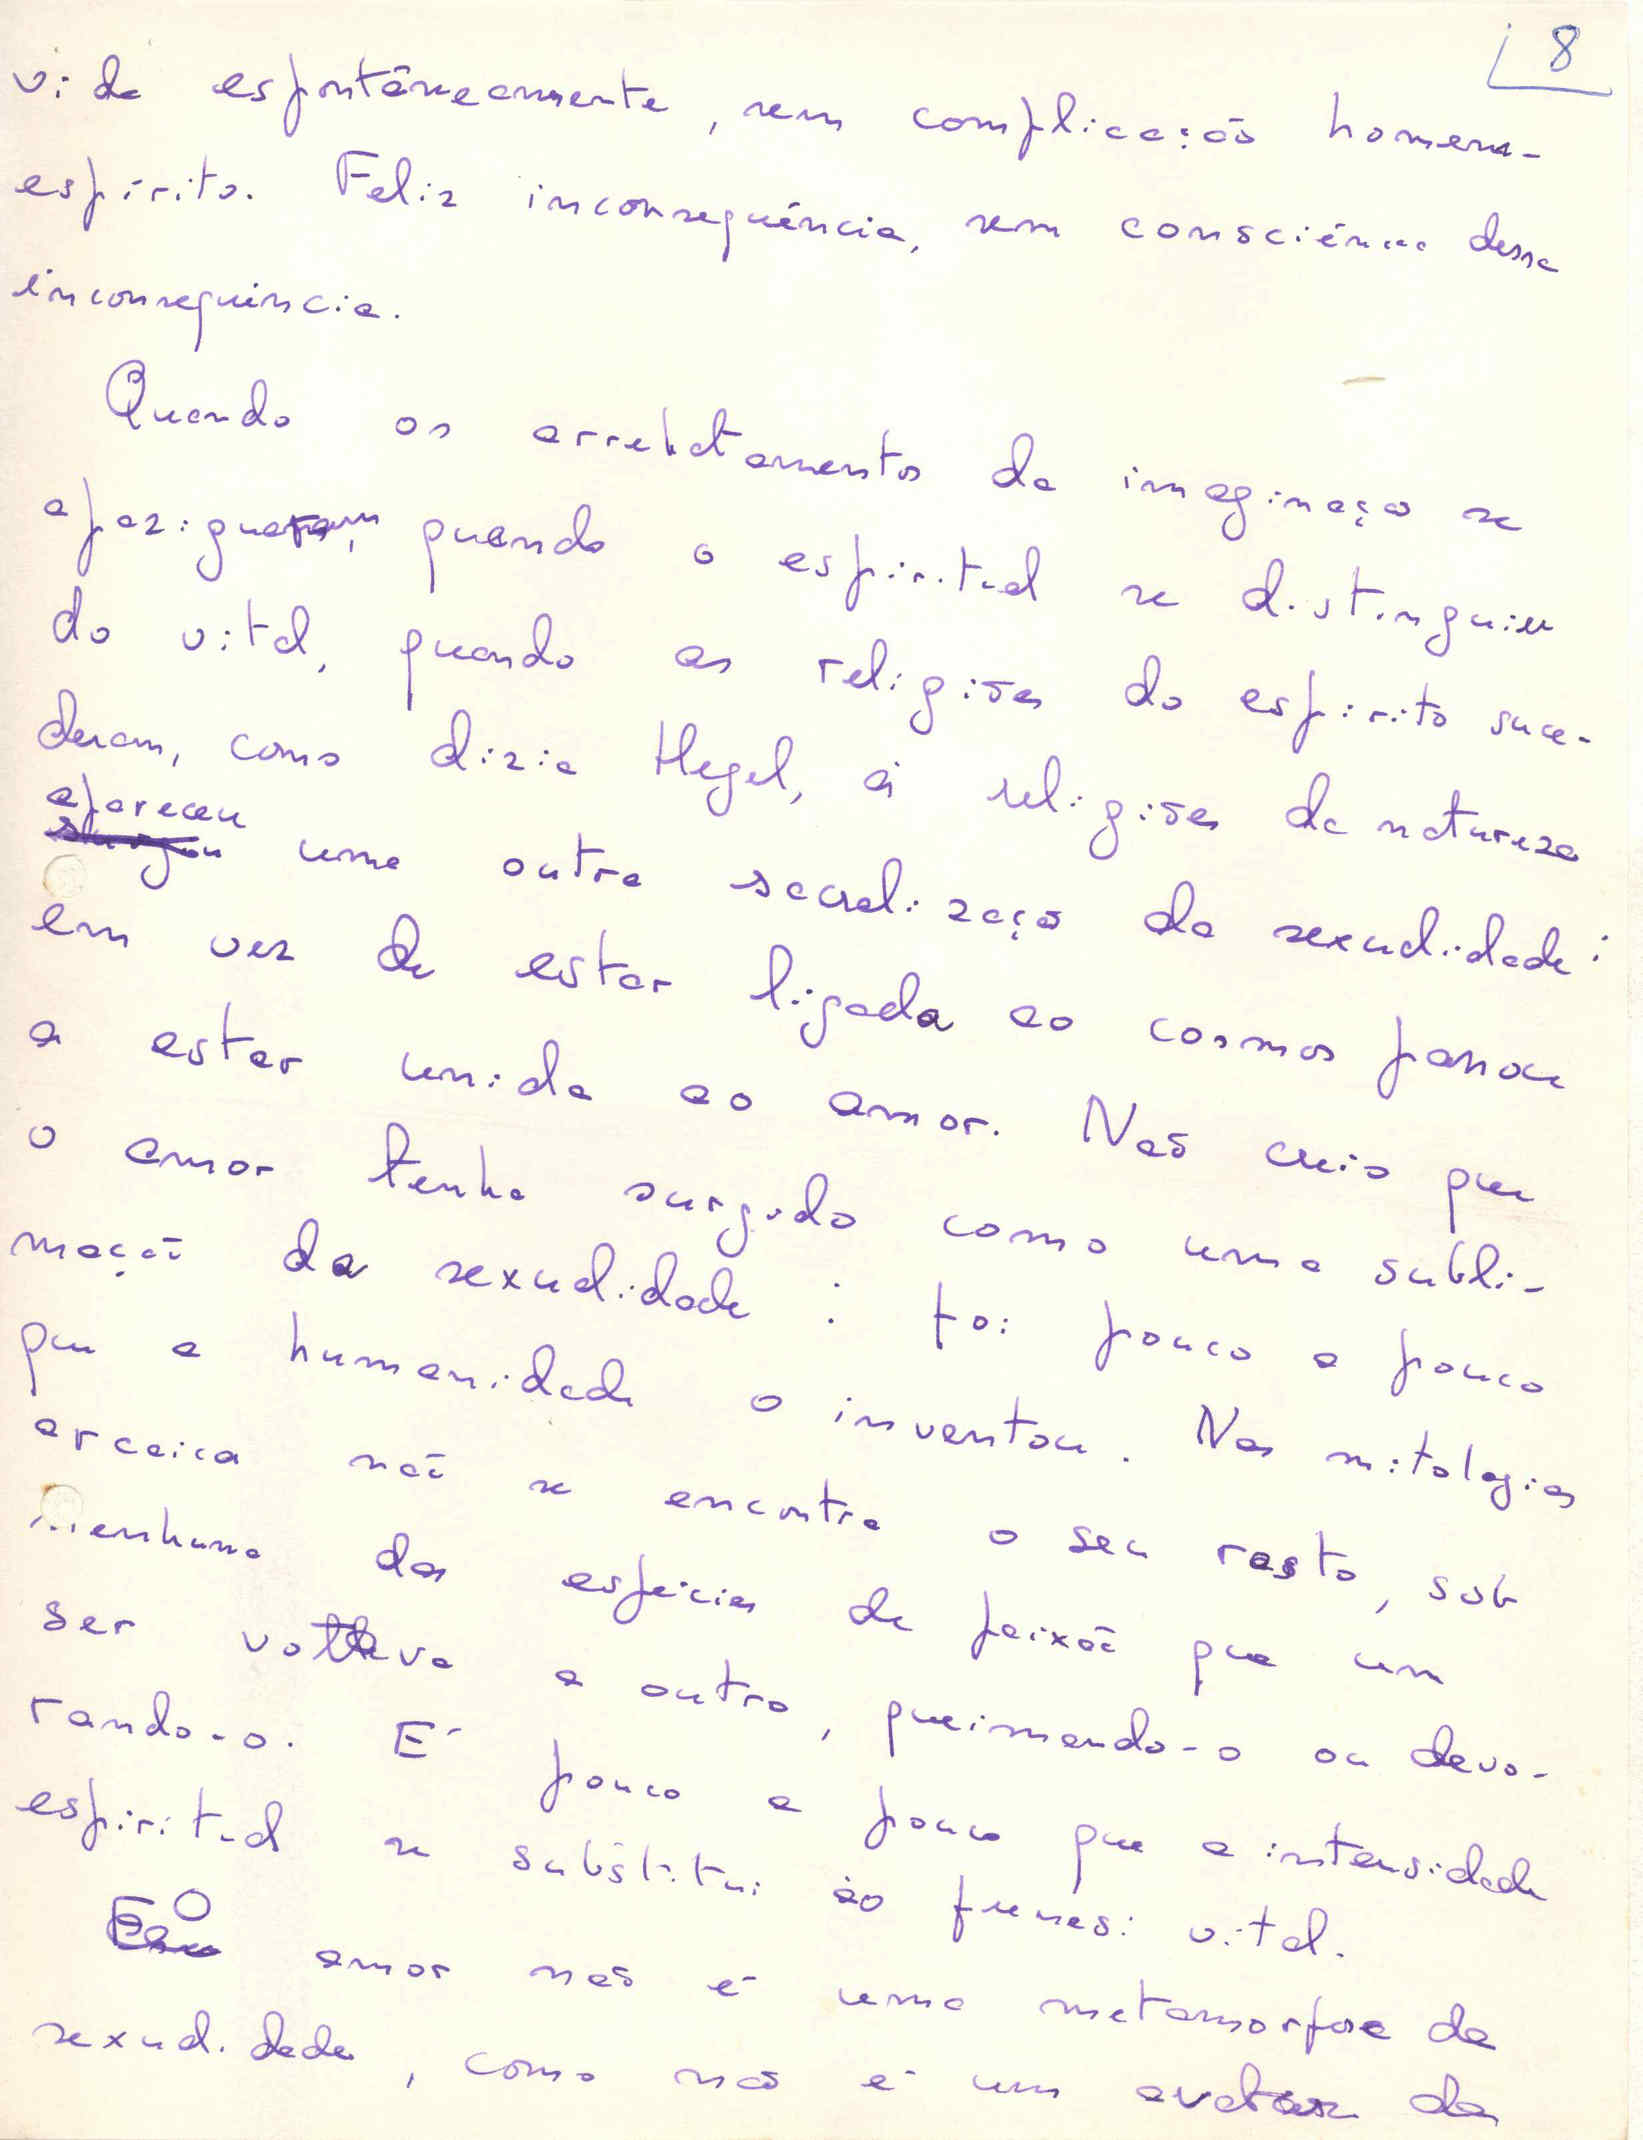 8
vida espontâneamente, sem complicação homem-
espírito. Feliz inconsequência, sem consciência dessa
inconsequência.
Quando os arrebatamentos da imaginação se
apaziguaram, quando o espiritual se distinguiu
do vital, quando as religiões do espírito suce-
deram, como dizia Hegel, às religiões da natureza
apareceu
surgiu uma outra sacralização da sexualidade:
em vez de estar ligada ao cosmos passou
a estar unida ao amor. Não creio que
o amor tenha surgido como uma subli-
mação da sexualidade: foi pouco a pouco
que a humanidade o inventou. Nas mitologias
arcaicas não se encontra o seu rasto, sob
nenhuma das espécies de paixão que um
ser votava a outro, queimando-o ou devo-
rando-o. É pouco a pouco que a intensidade
espiritual se substitui ao frenesi vital.
O amor não é uma metamorfose da
sexualidade, como não é um avatar da